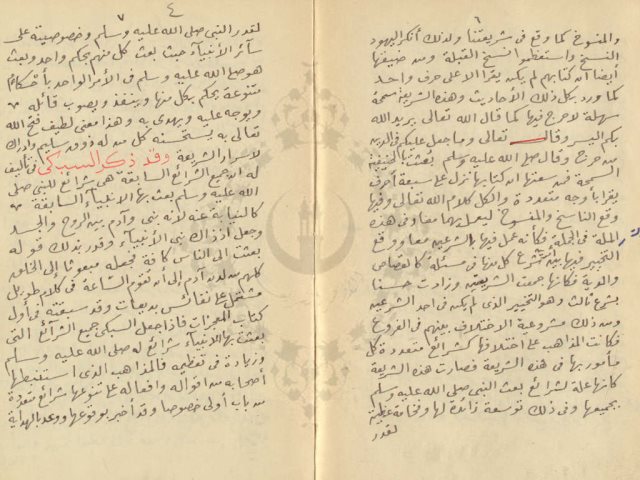 ٦
والمنسوخ كما وقع في شريعتنا ولذلك أنكر اليهود
النسخ واستعظموا نسخ القبلة ومن ضيقها
أيضا أن كتابهم لم يكن يقرأ الا على حرف واحد
كما ورد بكل ذلك الأحاديث وهذه الشريعة سمحة
سهلة لا حرج فيها كما قال الله تعالى يريد الله
بكم اليسر وقال تعالى وما جعل عليكم في الدين
من حرج وقال صلى الله عليه وسلم بعثت بالحنيفية
السمحة فمن سعتها ان كتابها نزل على سبعة أحرف
يقرأ بأوجه متعددة والكل كلام الله تعالى وفيها
وقع الناسخ والمنسوخ ليعمل بهما معا في هذه
الملة في الجملة فكأنه عمل فيها بالشرعين معا ووقع
التخيير فيها بين شرع كل منها في مسئلة كالقصاص
والدية فكأنها جمعت الشريعتين وزادت حسنا
بشرع ثالث وهو التخيير الذي لم يكن في احد الشرعين
ومن ذلك مشروعية الاختلاف بينهم في الفروع
فكانت المذاهب على اختلافها كشرائع متعددة كل
مأمور بها في هذه الشريعة فصارت هذه الشريعة
كأنها عدة شرائع بعث النبي صلى الله عليه وسلم
بجميعها وفي ذلك توسعة زائدة لها وفخامة عظيمة
لقدر
٧
٤
لقدر النبي صلى الله عليه وسلم وخصوصية على
سائر الأنبياء حيث بعث كل منهم بحكم واحد وبعث
هو صلى الله عليه وسلم في الأمر الواحد بأحكام
متنوعة يحكم بكل منها وينفذ ويصوب قائله
ويوجه عليه ويهدى به وهذا معنى لطيف فتح الله
تعالى به يستحسنه كل من له ذوق سليم وادراك
لأسرار الشريعة وقد ذكر السبكي في تأليف
له ان جميع الشرائع السابقة هي شرائع للنبي صلى
الله عليه وسلم بعث بها الأنبياء السابقة
كالنيابة عنه لأنه نبي وآدم بين الروح والجسد
وجعل اذ ذاك نبي الأنبياء وقرر بذلك قوله
بعثت الى الناس كافة فجعله مبعوثا إلى الخلق
كلهم من لدن آدم إلى أن تقوم الساعة في كلام طويل
مشتمل على نفائس بديعات وقد سبقته في أول
كتاب المعجزات فاذا جعل السبكي جميع الشرائع التي
بعثت بها الأنبياء شرائع له صلى الله عليه وسلم
وزيادة في تعظيمه فالمذاهب الذي استنبطها
أصحابه من اقواله وافعاله على تنوعها شرائع متعددة
من باب أولى خصوصا وقد أخبر بوقوعها ووعد بالهداية